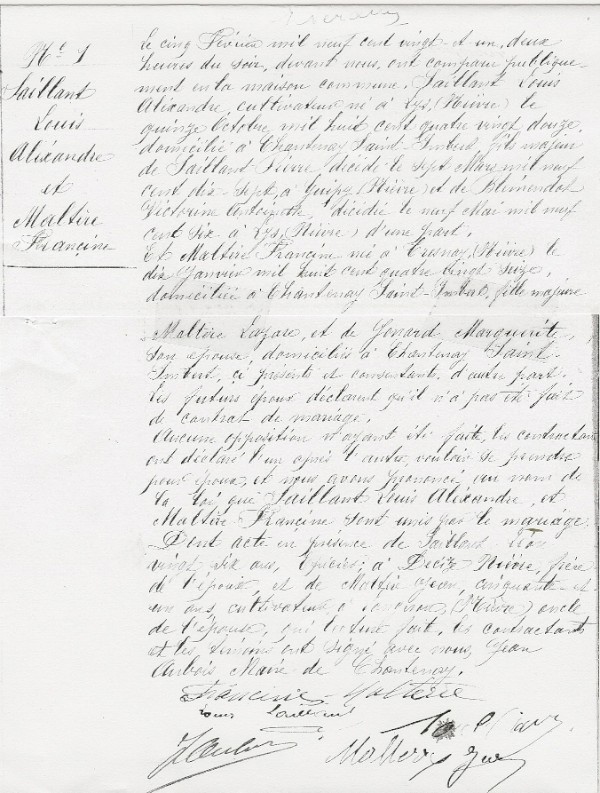 Nº 1
Saillant
Louis
Alexandre
et
Maltère
Francine
Le cinq Février mil neuf cent vingt et un, deux
heures du soir, devant nous, ont comparu publique-
ment en la maison commune, Saillant Louis
Alexandre, cultivateur né à Lys, (Nièvre) le
quinze Octobre mil huit cent quatre vingt douze,
domicilié à Chantenay Saint-Imbert, fils majeur
de Saillant Pierre, décédé le sept Mars mil neuf
cent dix sept, à Guipy (Nièvre) et de
Victorine Antoinette, décédée le neuf Mai mil neuf
cent six à Lys, (Nièvre) d'une part.
Et Maltère Francine née à Tresnay, (Nièvre) le
dix Janvier mil huit cent quatre vingt seize,
domiciliée à Chantenay Saint-Imbert, fille majeure
Maltère Lazare, et de Genard Marguerite,
son épouse, domiciliés à Chantenay Saint
Imbert, ci présents et consentants, d'autre part.
Les futurs époux déclarent qu'il n'a pas été fait
de contrat de mariage.
Aucune opposition n'ayant été faite, les contractants
ont déclaré l'un après l'autre, vouloir se prendre
pour époux, et nous avons prononcé, au nom de
la Loi que Saillant Louis Alexandre, et
Maltère Francine sont unis par le mariage.
Dont acte en présence de Saillant Léon
vingt six ans, épicier, à Decize Nièvre, frère
de l'époux, et de Maltère Jean, cinquante et
un ans, cultivateur, à (Nièvre) oncle
de l'épouse, qui lecture faite, les contractants
et les témoins ont signé avec nous, Jean
Aubois Maire de Chantenay.
Francine Maltère
Louis Saillant